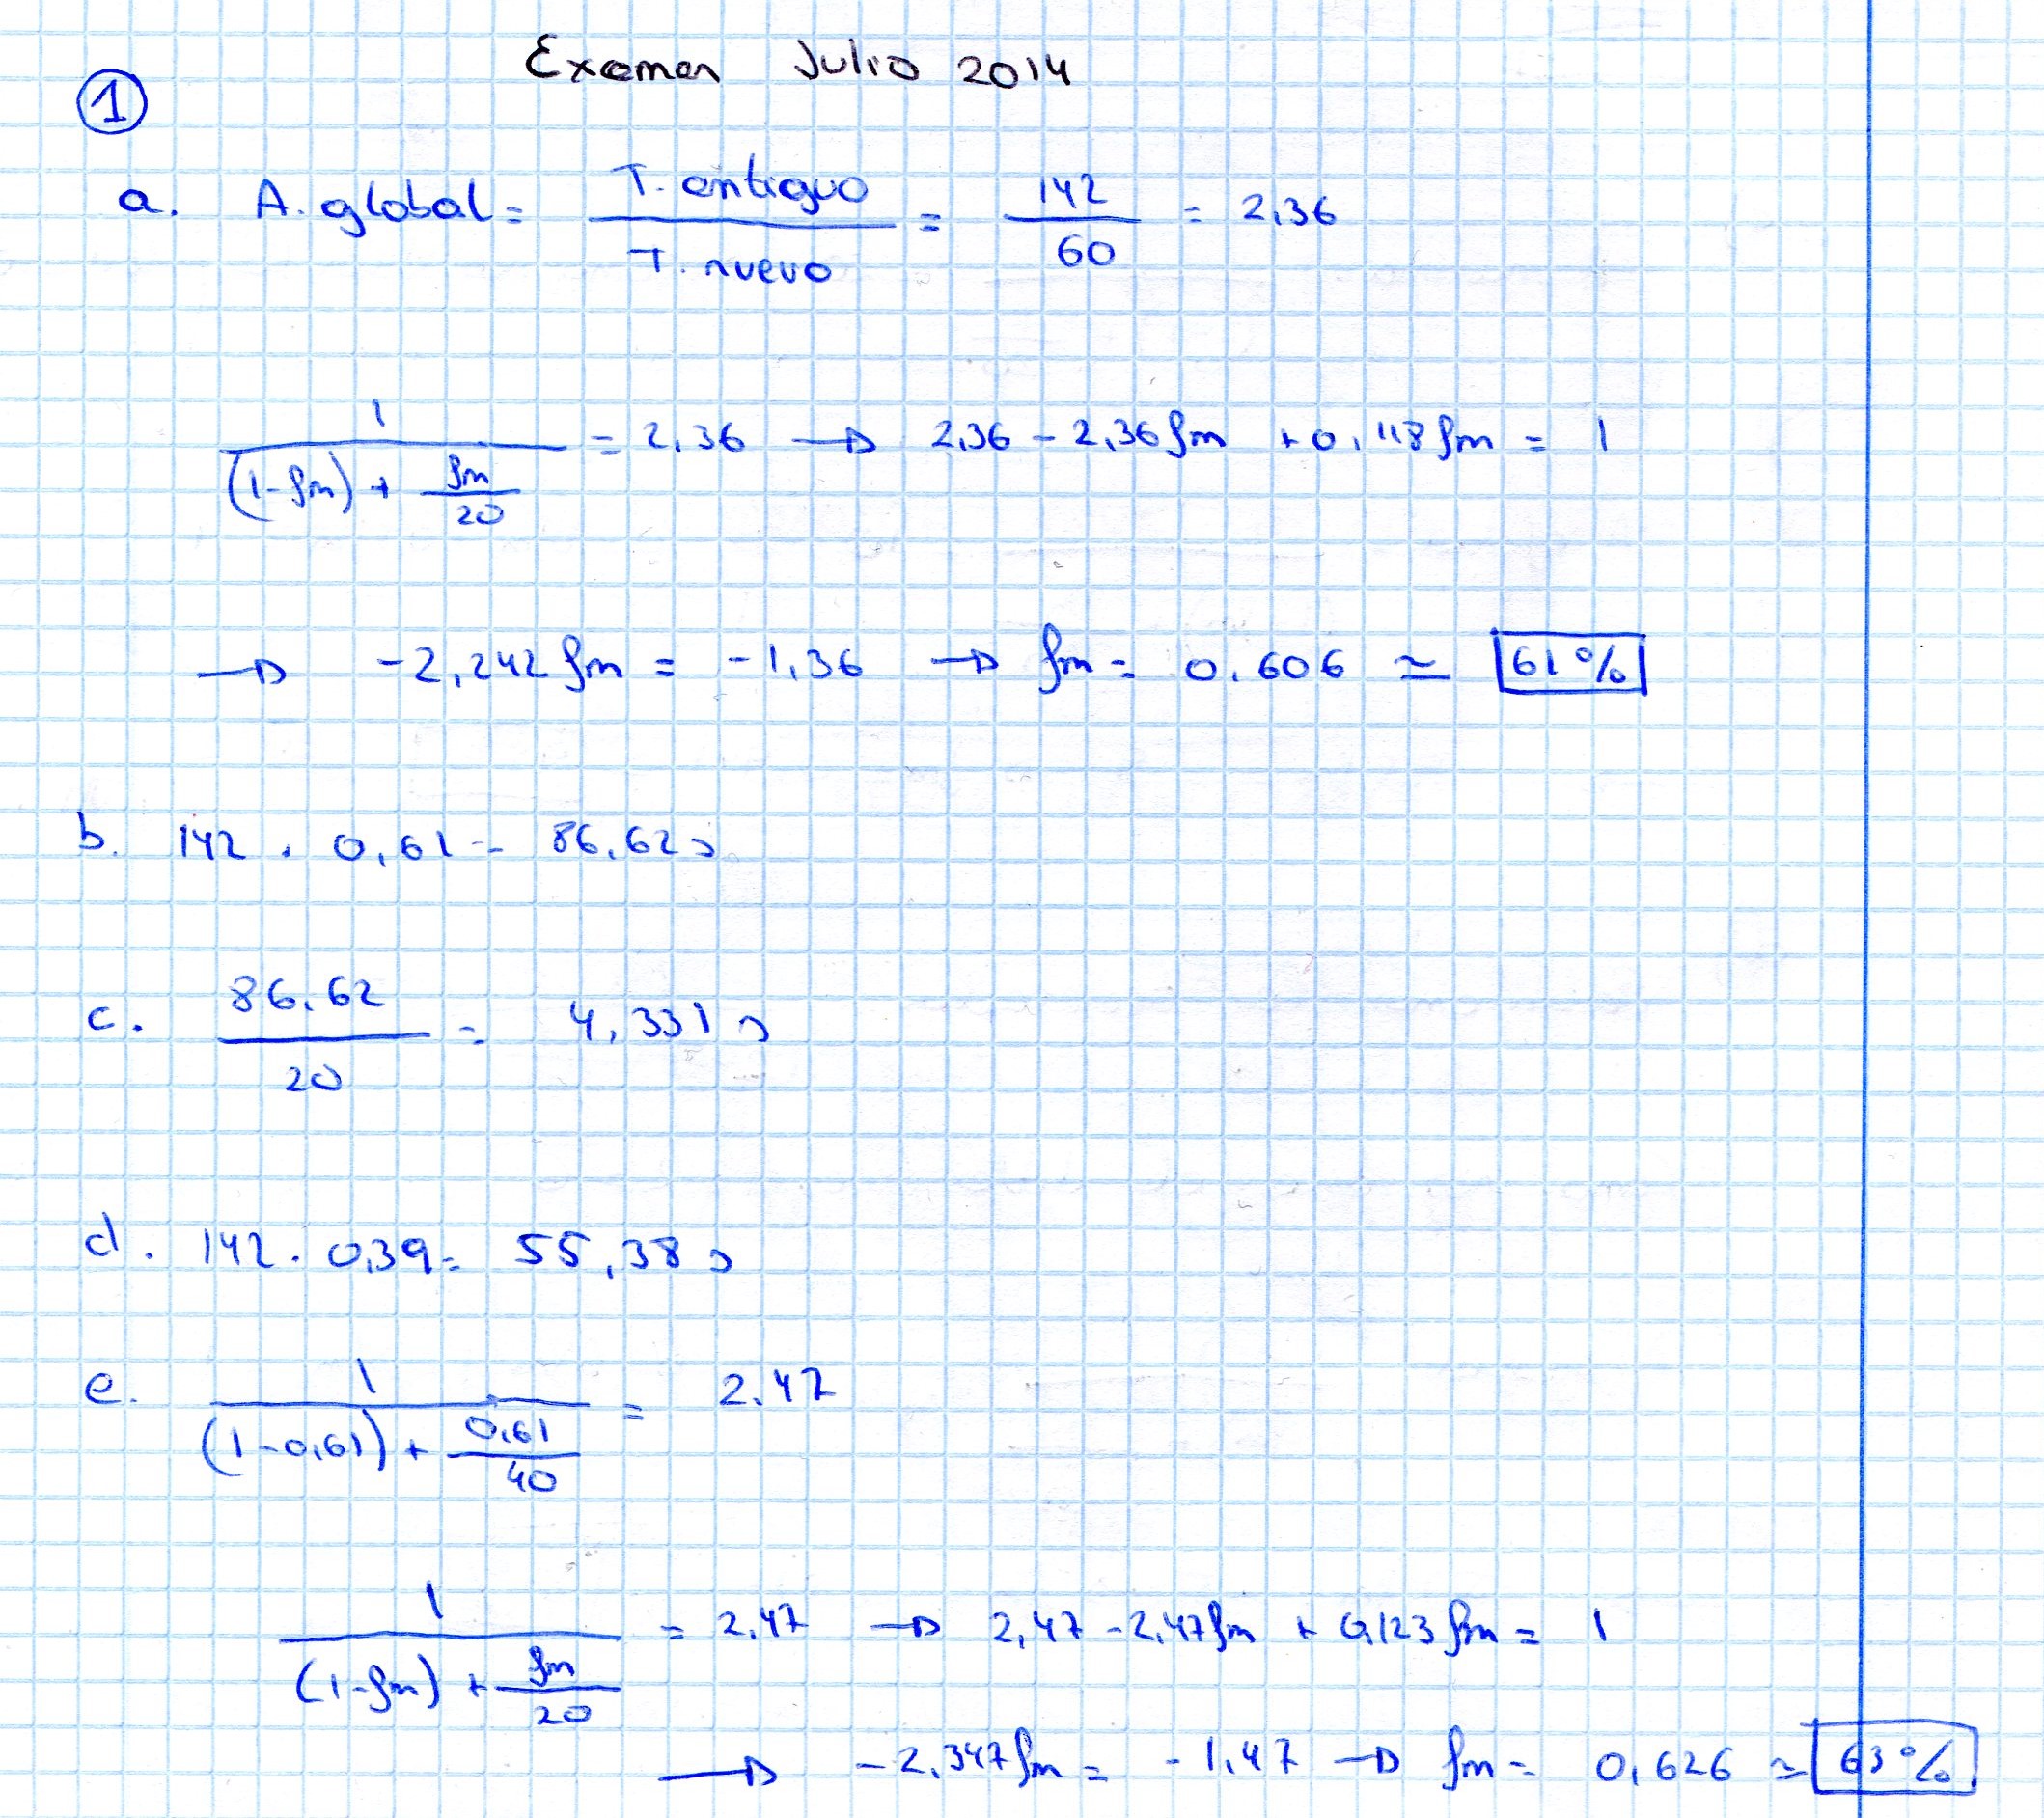 Examen Julio 2014
①
a. A. global = T. antiguo / T. nuevo = 142 / 60 = 2,36
1 / ((1-fm) + fm/20) = 2,36 → 2,36 - 2,36 fm + 0,118 fm = 1
→ -2,242 fm = -1,36 → fm = 0,606 ≃ 61%
b. 142 · 0,61 = 86,62 s
c. 86,62 / 20 = 4,331 s
d. 142 · 0,39 = 55,38 s
e. 1 / ((1-0,61) + 0,61/40) = 2,47
1 / ((1-fm) + fm/20) = 2,47 → 2,47 - 2,47 fm + 0,123 fm = 1
→ -2,347 fm = -1,47 → fm = 0,626 ≃ 63%